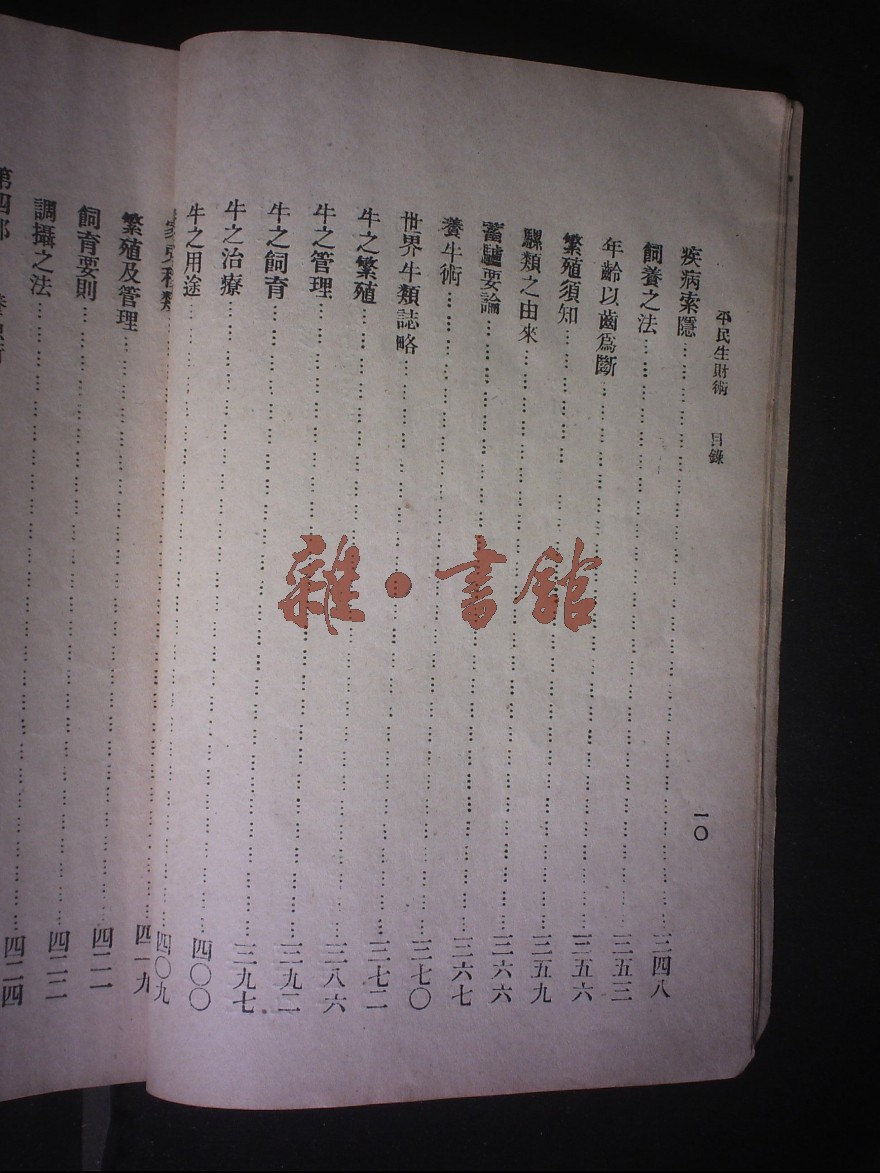 平民生財術 目錄 一〇
疾病索隱……三四八
飼養之法……三五三
年齡以齒爲斷……三五六
繁殖須知……三五九
騾類之由來……三六六
蓄驢要論……三六七
養牛術……三七〇
世界牛類誌略……三七二
牛之繁殖……三八六
牛之管理……三九二
牛之飼育……三九七
牛之治療……四〇〇
牛之用途……四〇九
類……四一九
繁殖及管理……四二一
飼育要則……四二二
調攝之法……四二四
第四部
雜·書館